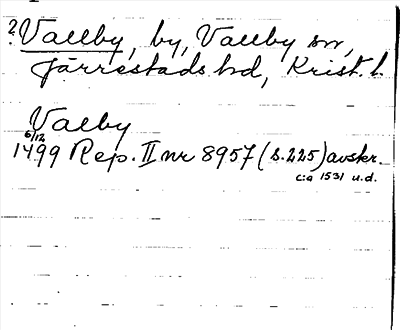 ? Vallby, by, Vallby sn,
Järrestads hd, Krist. l.
Valby
6/12
1499 Rep. II nr 8957 (s. 225) avskr.
c:a 1531 u.d.